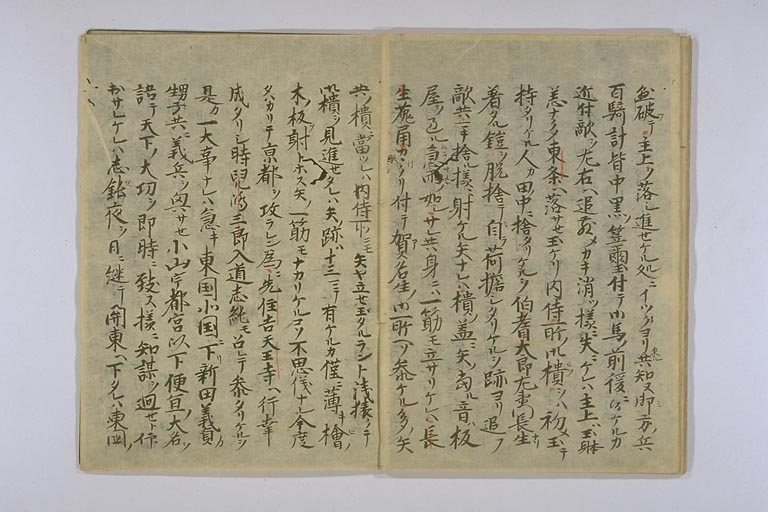 無破テ主上ヲ落シ進セケル処ニイツクヨリ来共知ヌ御方ノ兵
百騎計皆中黒ノ笠璽付テ小馬ノ前後ニ候ケルカ
近付敵ヲ左右ヘ追散メカキ消ス様ニ失ニケレハ主上ハ玉躰
恙ナクメ東条ヘ落サセ玉ケリ内侍所ノ櫃ヲハ初メテ
持タリケル人カ田中ニ捨タリケルヲ伯耆太郎左衛門長生
著タル鎧ヲ脱捨テ自荷擔シタリケル跡ヨリ追フ
敵共ニ手捨ル様ニ射ケル矢ナレハ櫃ノ蓋ニ矢ノ当ル音板
屋ヲ過ル急雨ノ如シサレ共身ニハ一筋モ立サリケレハ長
生兎角カヽクリ付テ賀名生ノ御所ヘソ参ケル多ノ矢
共ノ櫃ニ當ツレハ内侍所ニモ矢ヤ立セ玉タルラント浅猿クテ
御櫃ヲ見進セタレハ矢ノ跡ハ十三マテ有ケルカ僅ニ薄キ檜
木ノ板ヲ射トホス矢ノ一筋モナカリケルコソ不思儀ナレ今度
タハカリテ京都ヲ攻ラレン為ニ先住吉天王寺ヘ行幸
成タリシ時児嶋三郎入道志純モ召レテ参タリケルヲ
是カ一大事ナレハ急キ東国北国ニ下リ新田義貞カ
甥子共ニ義兵ヲ興サセ小山宇都宮以下便宜ノ大名ヲ
語テ天下ノ大功ヲ即時ニ致ス様ニ知謀ヲ廻セト仰
出サレケレハ志純夜ヲ日ニ継テ関東ヘ下タレハ東国ノ